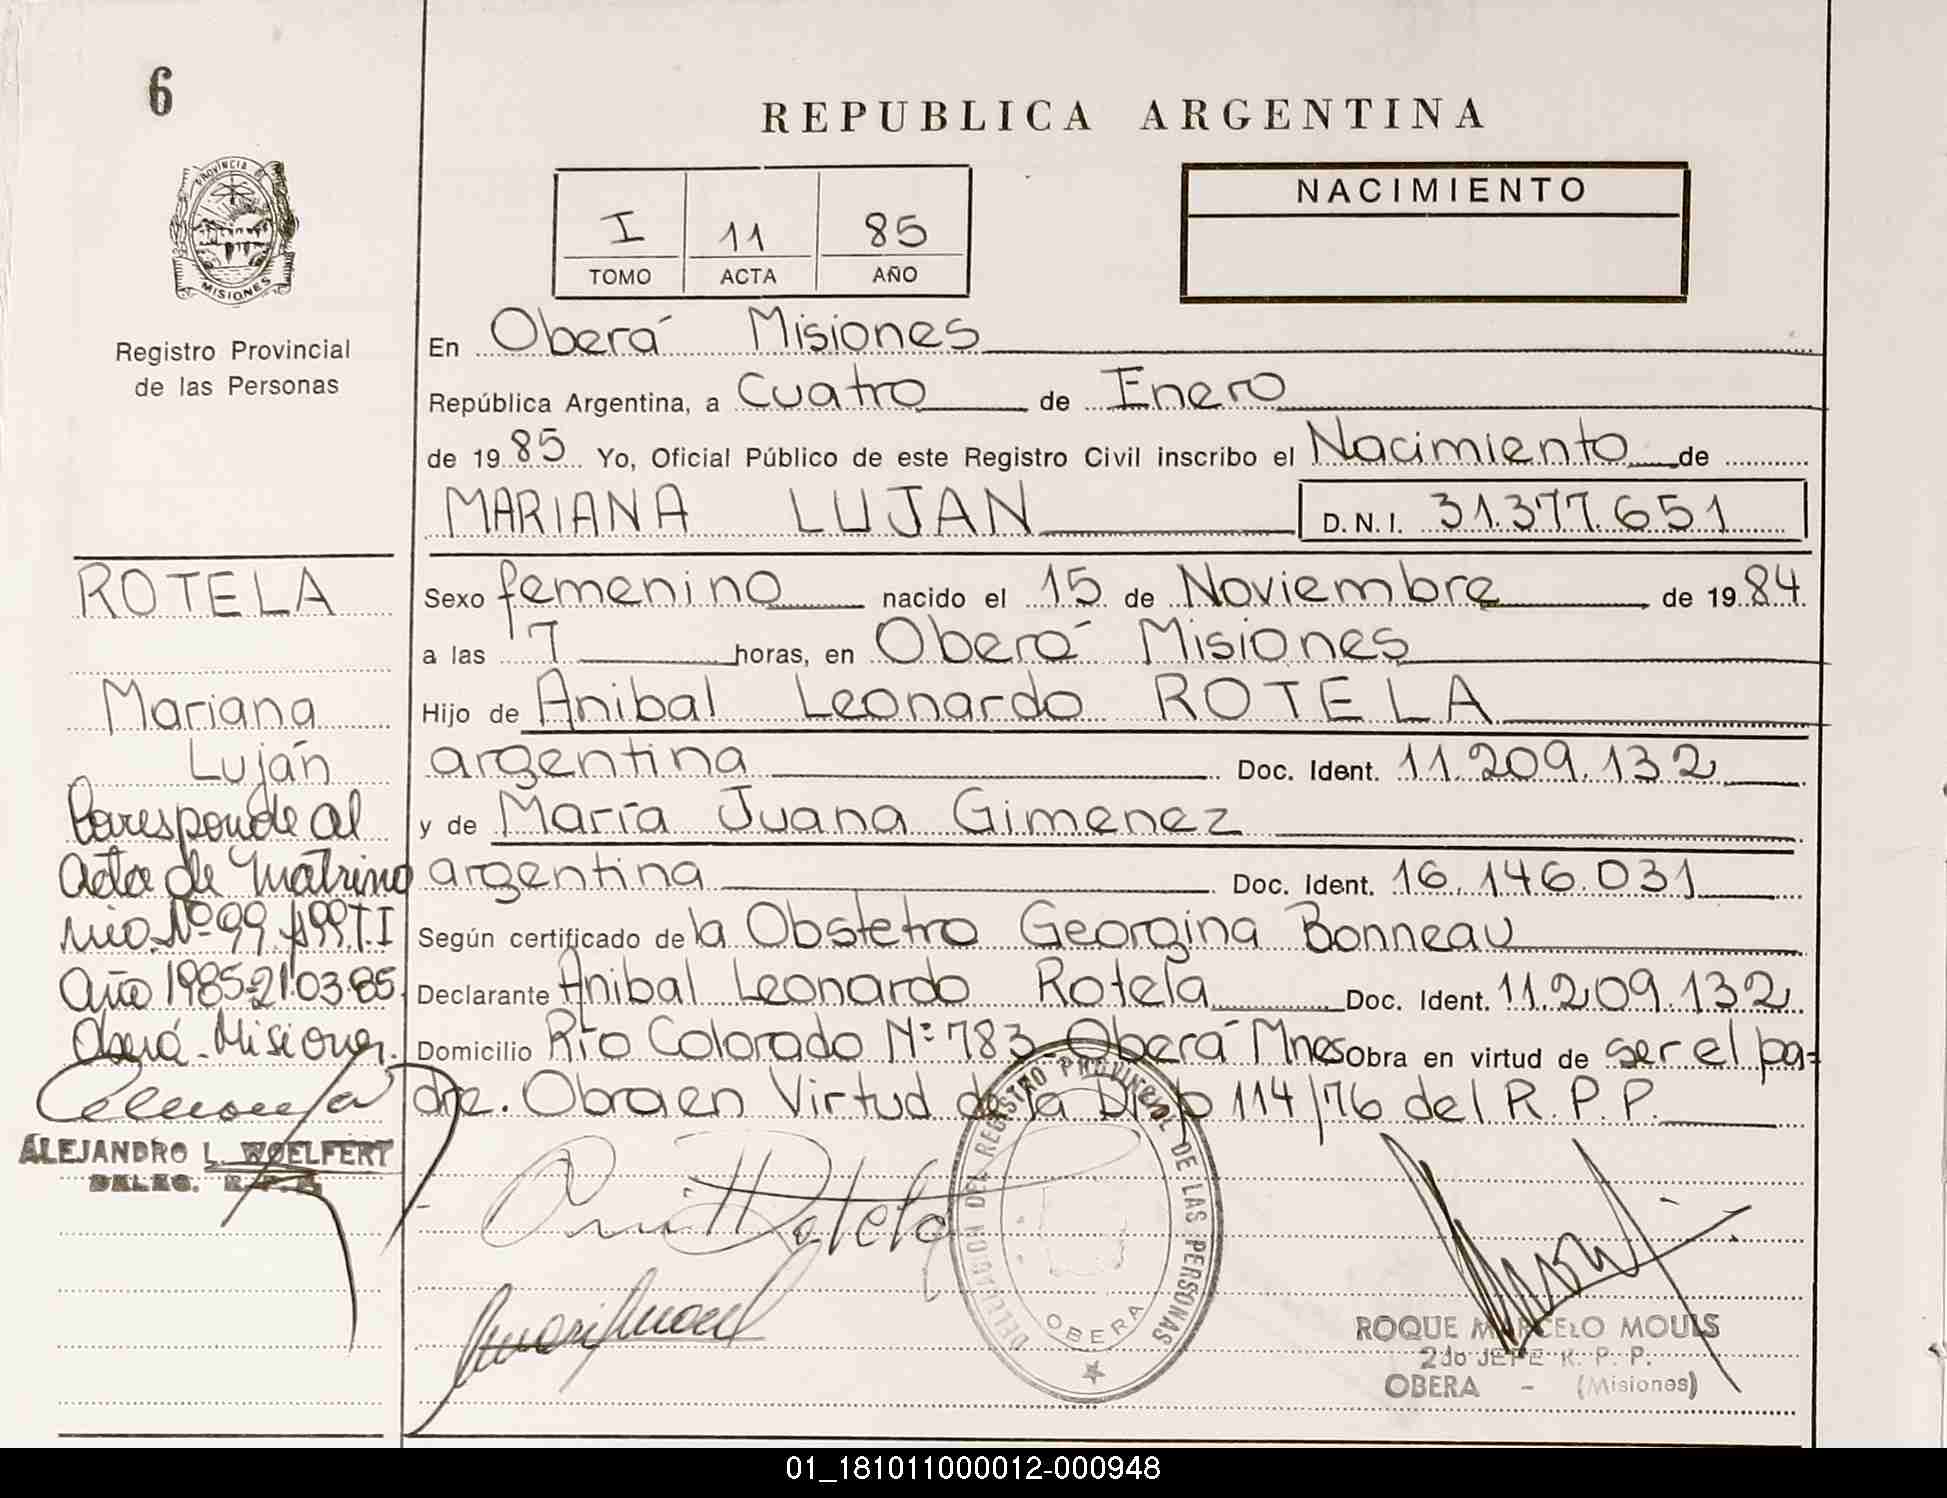 6
PROVINCIA D
MISIONES
Registro Provincial
de las Personas
ROTELA
Mariana
Luján
Corresponde al
Acta de Matrimo
nio. Nº 99 T.I
Año 1985-21.03.85.
Oberá - Misiones.
ALEJANDRO L. WOELFERT
DELEG. R.P.P.
REPUBLICA ARGENTINA
I 11 85
TOMO ACTA AÑO
NACIMIENTO
En Oberá Misiones
República Argentina, a Cuatro de Enero
de 1985 Yo, Oficial Público de este Registro Civil inscribo el Nacimiento de
MARIANA LUJAN D.N.I. 31.377.651
Sexo femenino nacido el 15 de Noviembre de 1984
a las 7 horas, en Oberá Misiones
Hijo de Anibal Leonardo ROTELA
argentina Doc. Ident. 11.209.132
y de María Juana Gimenez
argentina Doc. Ident. 16.146.031
Según certificado de la Obstetra Georgina Bonneau
Declarante Anibal Leonardo Rotela Doc. Ident. 11.209.132
Domicilio Río Colorado Nº 783 Oberá Mnes Obra en virtud de ser el pa-
dre. Obra en Virtud de la Disp 114/76 del R.P.P.
Rotela
DELEGACION DEL REGISTRO PROVINCIAL DE LAS PERSONAS
OBERA
ROQUE MARCELO MOULS
2do JEFE R. P. P.
OBERA - (Misiones)
01_181011000012-000948